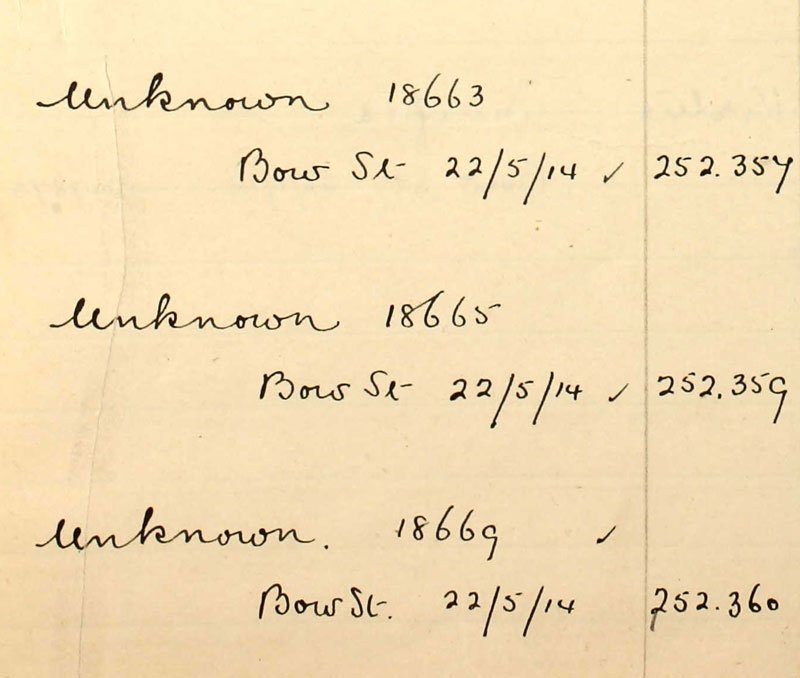 Unknown 18663
Bow St 22/5/14 ✓ 252.357
Unknown 18665
Bow St 22/5/14 ✓ 252.359
Unknown. 18669 ✓
Bow St. 22/5/14 252.360